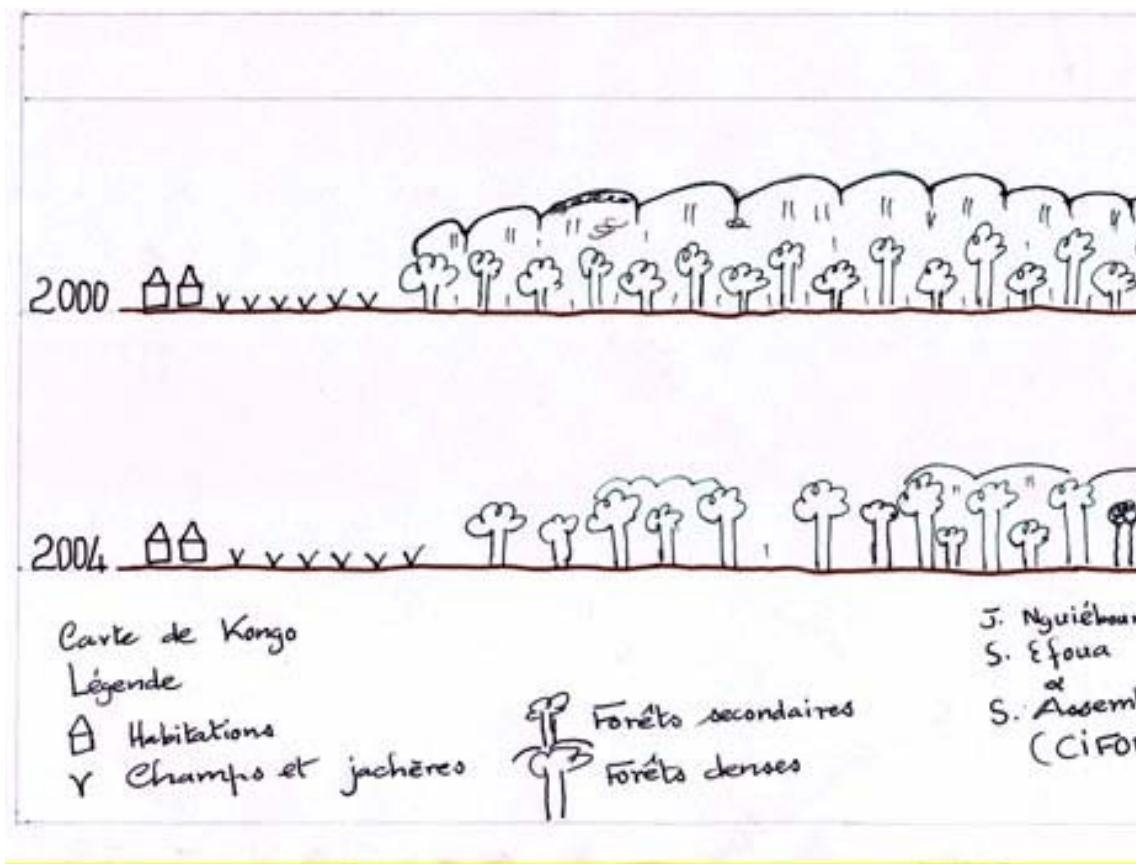 2000
2004
Carte de Kongo
Légende
Habitations
Champs et jachères
Forêts secondaires
Forêts denses
J.
S. Efoua
&
S.